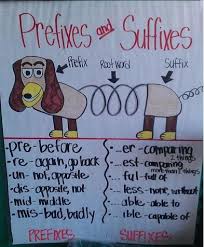 Prefixes and Suffixes
Prefix Root Word Suffix
pre- before
-re- again, go back
-un- not, opposite
-dis- not, opposite
-mid- middle
-mis- bad, badly
...er - comparing 2 things
...est - comparing more than 2 things
...ful - full of
...less - none, without
...able - able to
...ible - capable of
PREFIXES
SUFFIXES